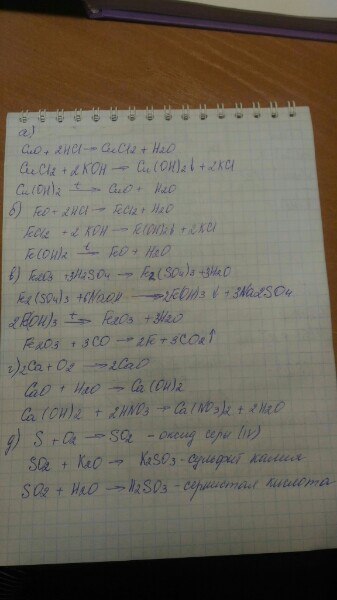 а)
CuO + 2HCl → CuCl2 + H2O
CuCl2 + 2 KOH → Cu(OH)2↓ + 2KCl
Cu(OH)2 t→ CuO + H2O
б) FeO + 2HCl → FeCl2 + H2O
FeCl2 + 2 KOH → Fe(OH)2↓ + 2KCl
Fe(OH)2 t→ FeO + H2O
в) Fe2O3 + 3H2SO4 → Fe2(SO4)3 + 3H2O
Fe2(SO4)3 + 6NaOH → 2Fe(OH)3↓ + 3Na2SO4
2Fe(OH)3 t→ Fe2O3 + 3H2O
Fe2O3 + 3CO → 2Fe + 3CO2↑
г) 2Ca + O2 → 2CaO
CaO + H2O → Ca(OH)2
Ca(OH)2 + 2HNO3 → Ca(NO3)2 + 2H2O
д) S + O2 → SO2 - оксид серы (IV)
SO2 + K2O → K2SO3 - сульфит калия
SO2 + H2O → H2SO3 - сернистая кислота